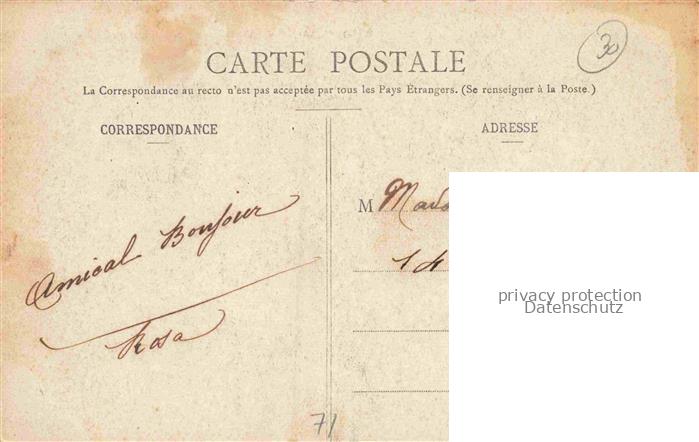 30
CARTE POSTALE
La Correspondance au recto n'est pas acceptée par tous les Pays Étrangers. (Se renseigner à la Poste.)
CORRESPONDANCE
ADRESSE
Amical Bonjour
Rosa
M
14
privacy protection
Datenschutz
71